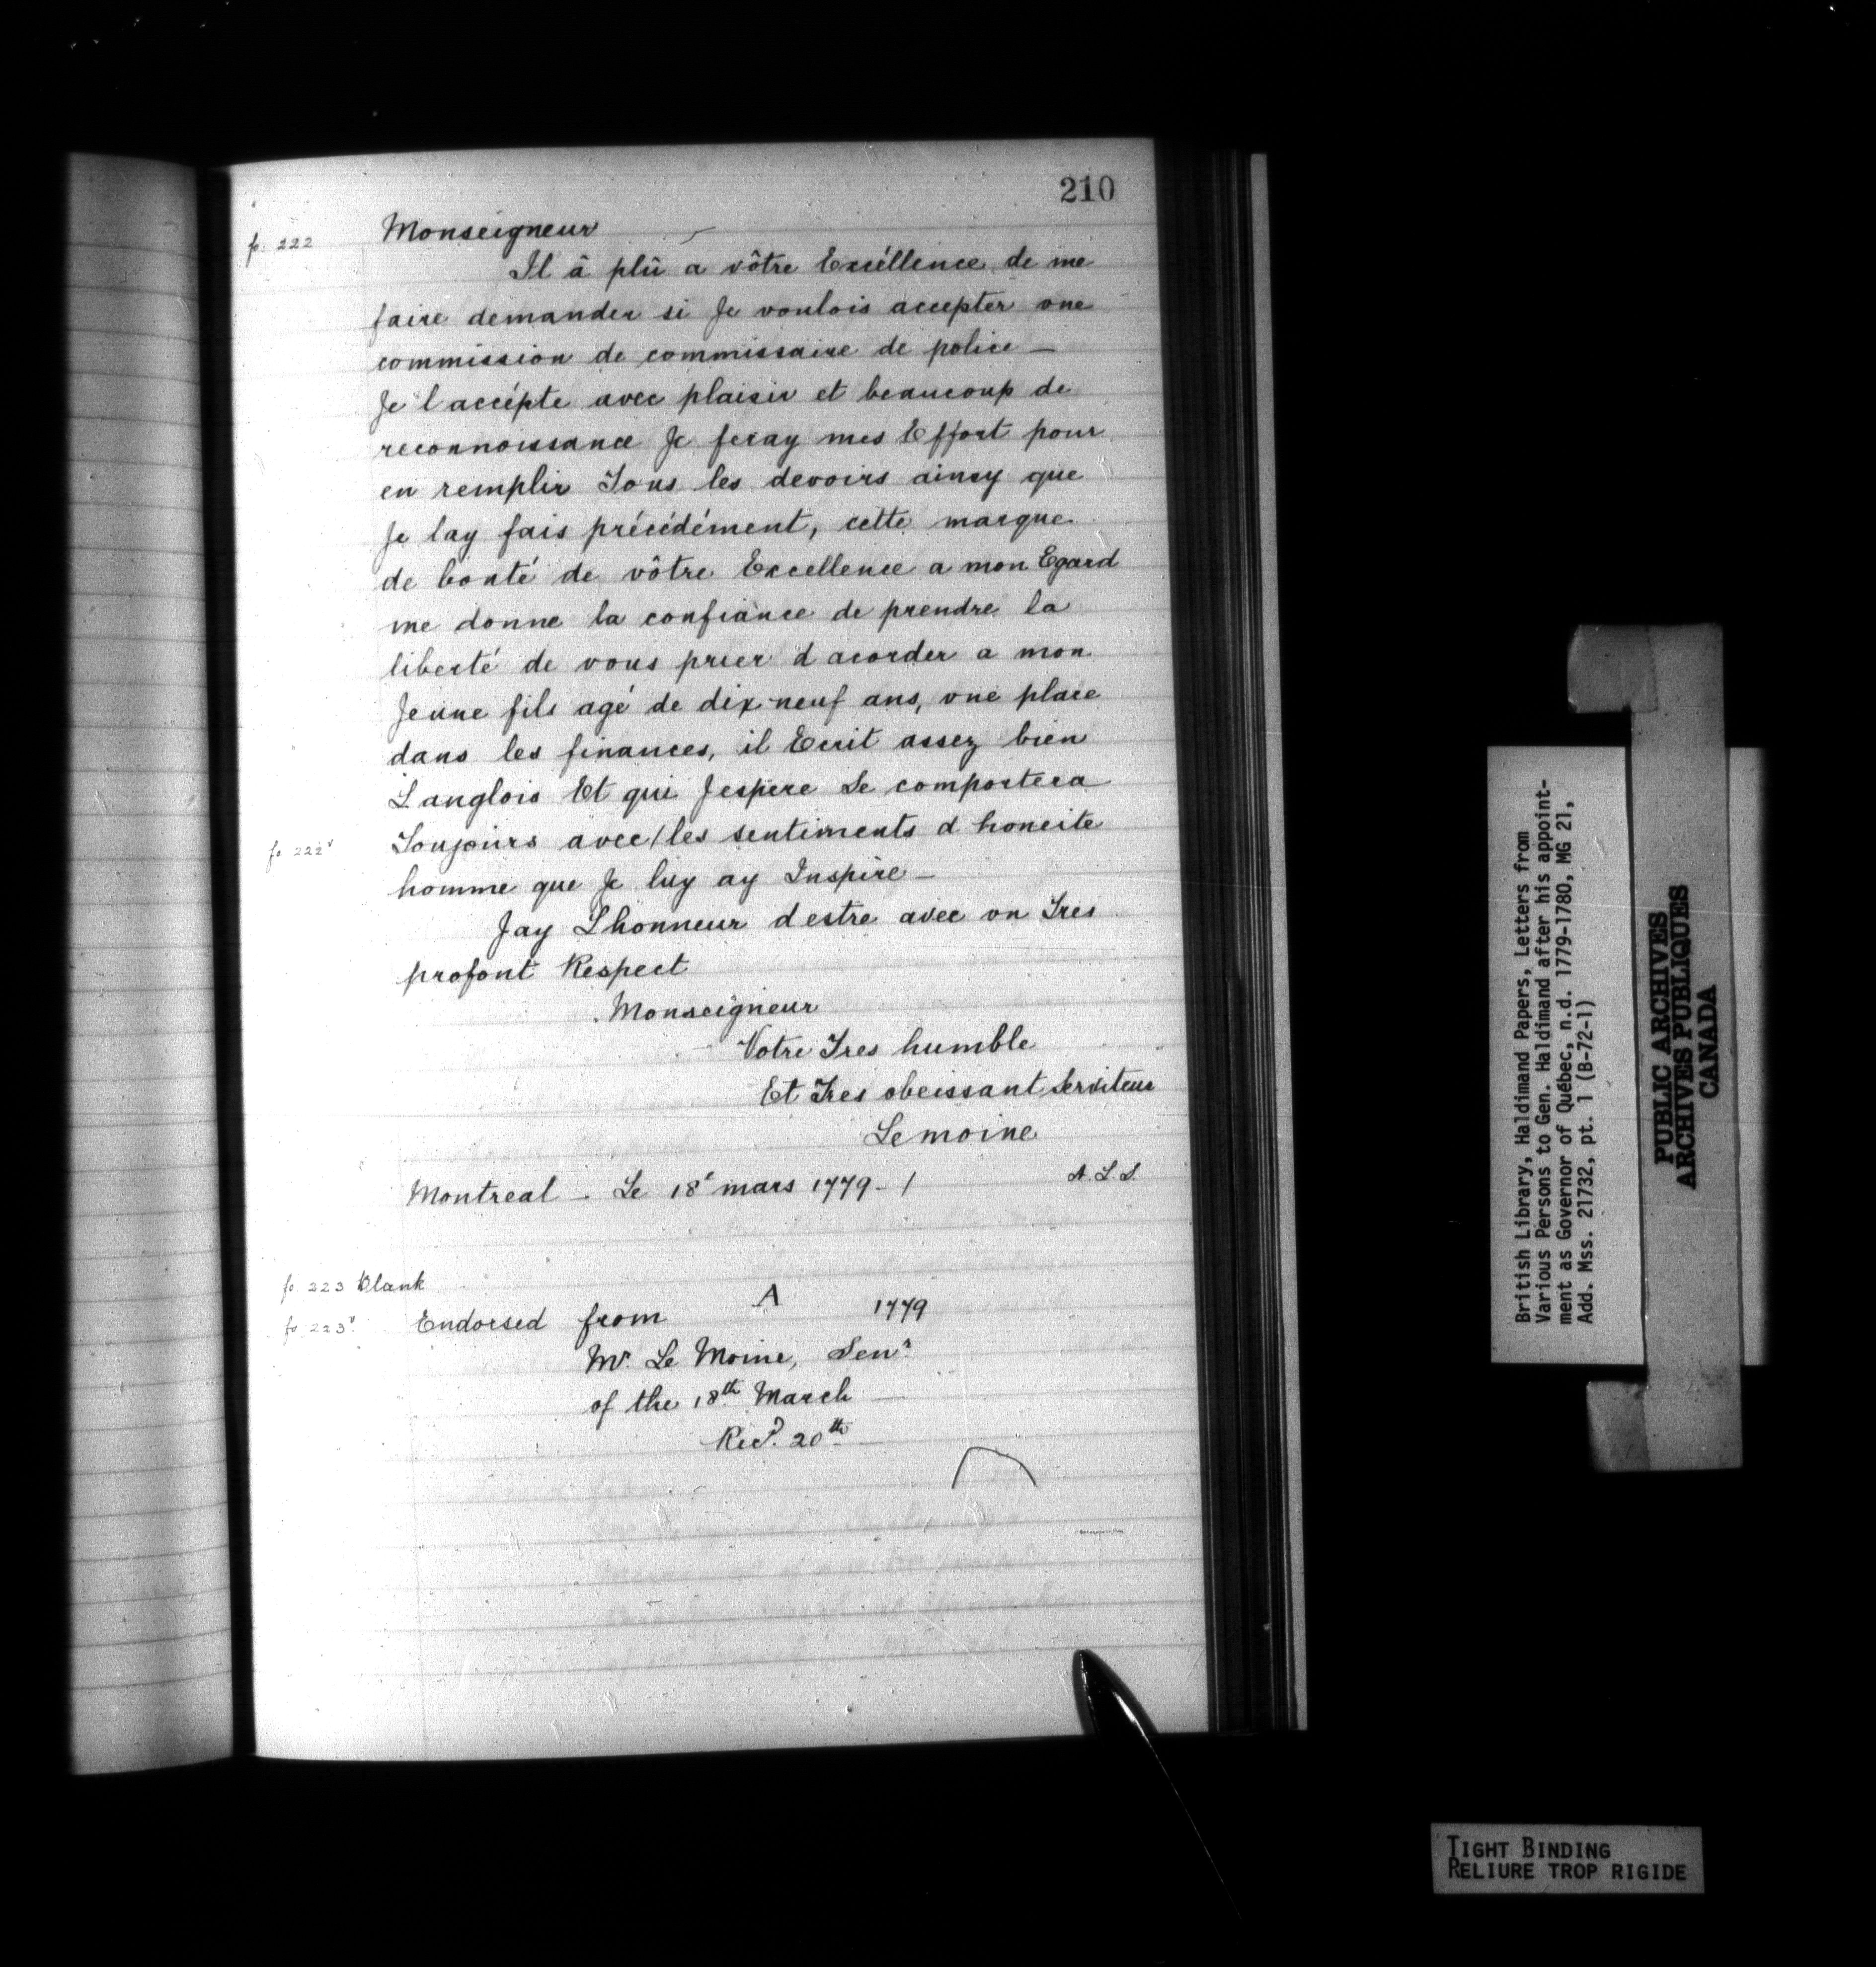 210
fo. 222
Monseigneur
Il â plû a vôtre Excéllence de me
faire demander si Je voulois accepter vne
commission de commissaire de police —
Je l accépte avec plaisir et beaucoup de
reconnoissance Je feray mes Effort pour
en remplir Tous les devoirs ainsy que
Je lay fais précédément, cette marque
de bonté de vôtre Excellence a mon Egard
me donne la confiance de prendre la
liberté de vous prier d acorder a mon
Jeune fils agé de dix neuf ans, vne place
dans les finances, il Ecrit assez bien
Langlois Et qui Jespere Se comportera
fo 222v
Toujours avec/les sentiments d honeite
homme que Je luy ay Inspire —
Jay Lhonneur d estre avec vn Tres
profont Respect
Monseigneur
Votre Tres humble
Et Tres obeissant Serviteur
Lemoine
Montreal - Le 18e mars 1779 - /
A. L. S.
fo 223 Blank
fo 223v.
Endorsed from A 1779
Mr. Le Moine, Senr
of the 18th March
Recd. 20th
British Library, Haldimand Papers, Letters from
Various Persons to Gen. Haldimand after his appoint-
ment as Governor of Québec, n.d. 1779-1780, MG 21,
Add. Mss. 21732, pt. 1 (B-72-1)
PUBLIC ARCHIVES
ARCHIVES PUBLIQUES
CANADA
TIGHT BINDING
RELIURE TROP RIGIDE